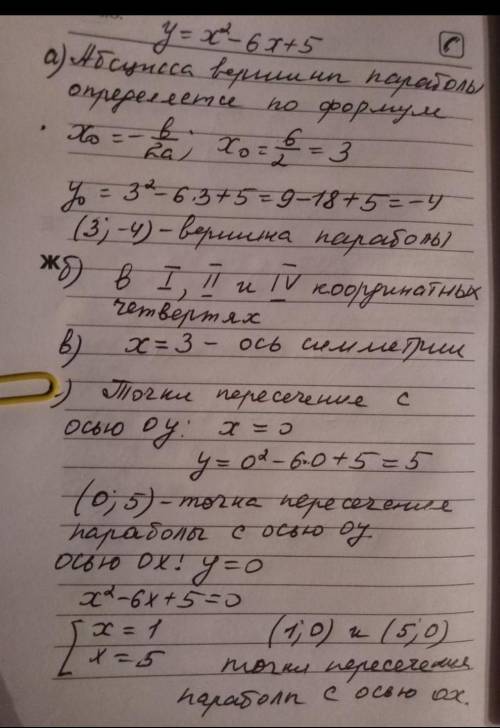 y = x² - 6x + 5
а) Абсцисса вершины параболы
определяется по формул
x₀ = -в/2а; x₀ = 6/2 = 3
y₀ = 3² - 6·3 + 5 = 9 - 18 + 5 = -4
(3; -4) - вершина параболы
жб) в I, II и IV координатных
четвертях
в) x = 3 - ось симметрии
) Точки пересечение с
осью Oy: x = 0
y = 0² - 6·0 + 5 = 5
(0; 5) - точка пересечение
параболы с осью Oy.
осью Ox: y = 0
x² - 6x + 5 = 0
[ x = 1 (1; 0) и (5; 0)
x = 5 точки пересечения
параболы с осью ox.